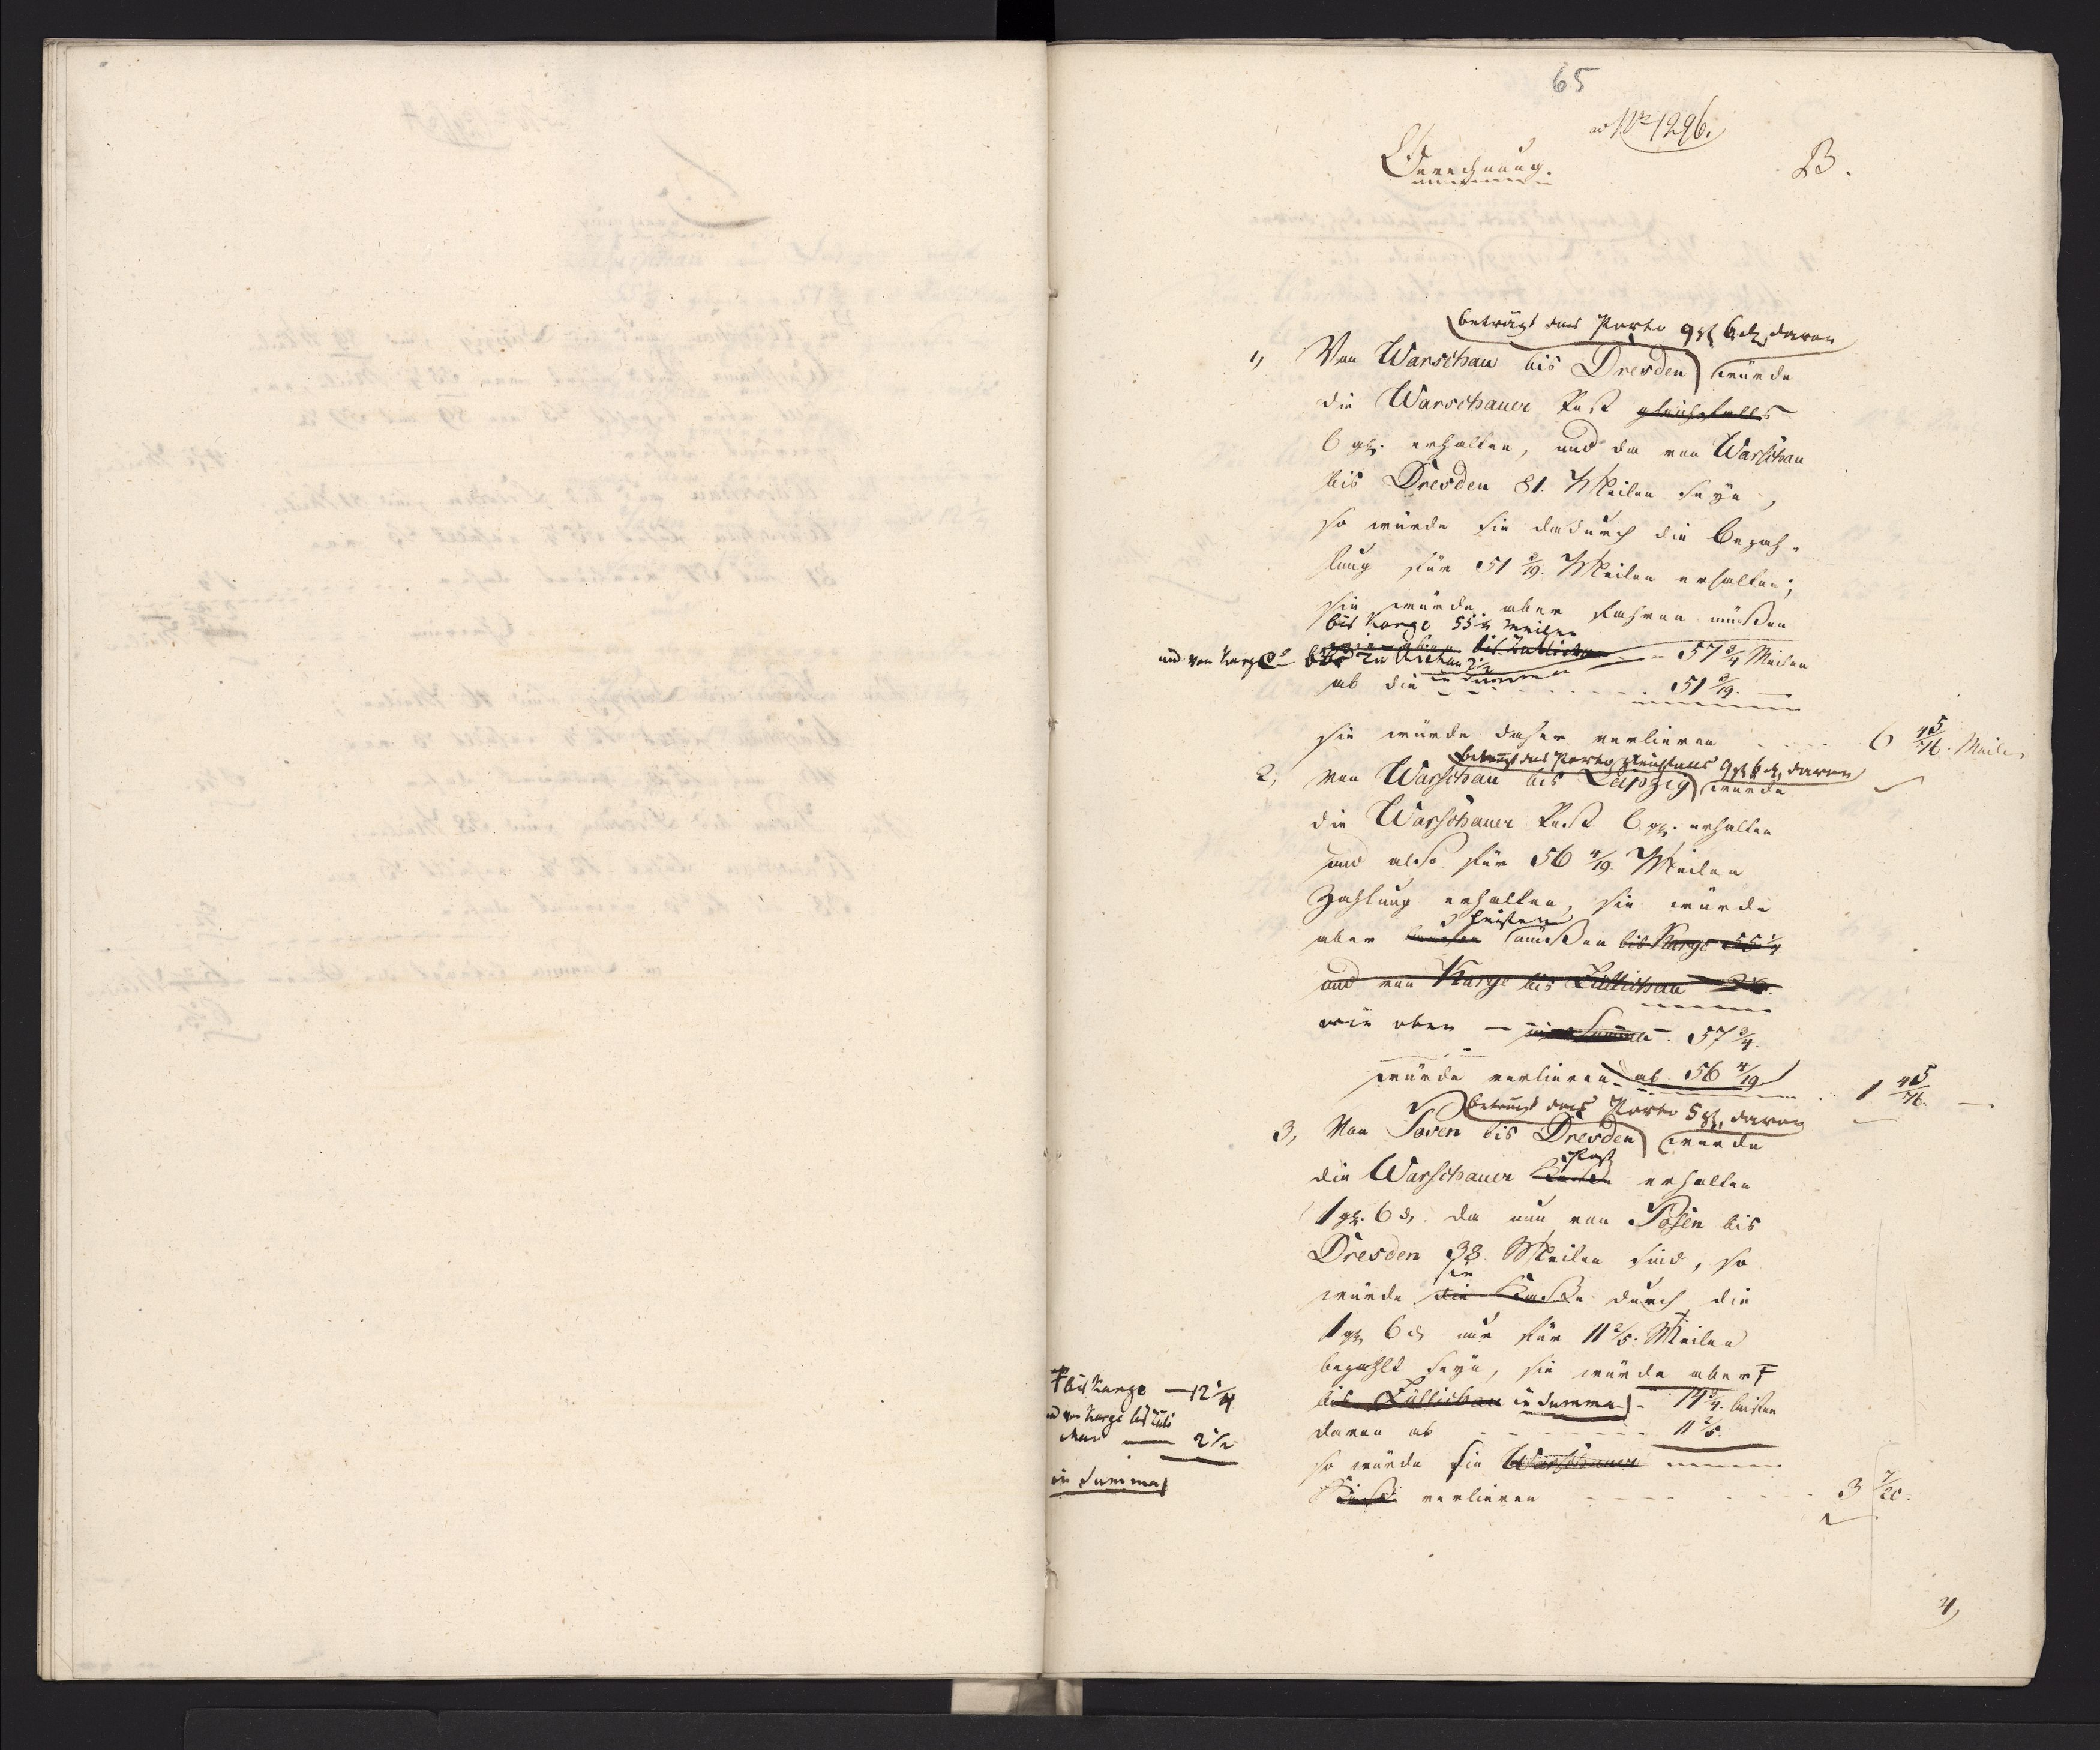 65
ad Nro 1296.
Berechnung.
B.
beträgt das Porto 9 gl 6 d, davon
1, Von Warschau bis Dresden würde
die Warschauer Post gleichfalls
6 gl. erhalten, und da von Warschau
bis Dresden 81. Meilen seyn,
so würde sie dadurch die Bezah-
lung für 51 3/19. Meilen erhalten;
sie würde aber fahren müßen
bis Karge 55 1/4 Meilen
und von Karge bis Züllichau 2 1/2
in Summa - 57 3/4 Meilen
ab die - - - 51 3/19.
sie würde daher verlieren - - - 6 45/76. Meilen
beträgt das Porto gleichfalls 9 gl 6 d, davon
2, Von Warschau bis Leipzig würde
die Warschauer Post 6 gl. erhalten
und also für 56 4/19 Meilen
Zahlung erhalten, sie würde
leisten
aber müßen bis Karge 55 1/4
und von Karge bis Züllichau 2 1/2.
wie oben - in Summa. 57 3/4.
würde verlieren ab 56 4/19 . 1 45/76. -
beträgt das Porto 5 gl, davon
3, Von Posen bis Dresden würde
Post
die Warschauer Casse erhalten
1 gl. 6 d. da nun von Posen bis
Dresden 38 Meilen sind, so
sie
würde die Casse durch die
1 gl 6 d nur für 11 2/5. Meilen
bezahlt seyn, sie würde aber
bis Karge - 12 1/4
und von Karge bis Züllichau - 2 1/2
in Summa
bis Züllichau in Summa - 14 3/4. leisten
davon ab - - - 11 2/5.
so würde sie Warschauer
Casse verlieren - - - 3 7/20.
4,